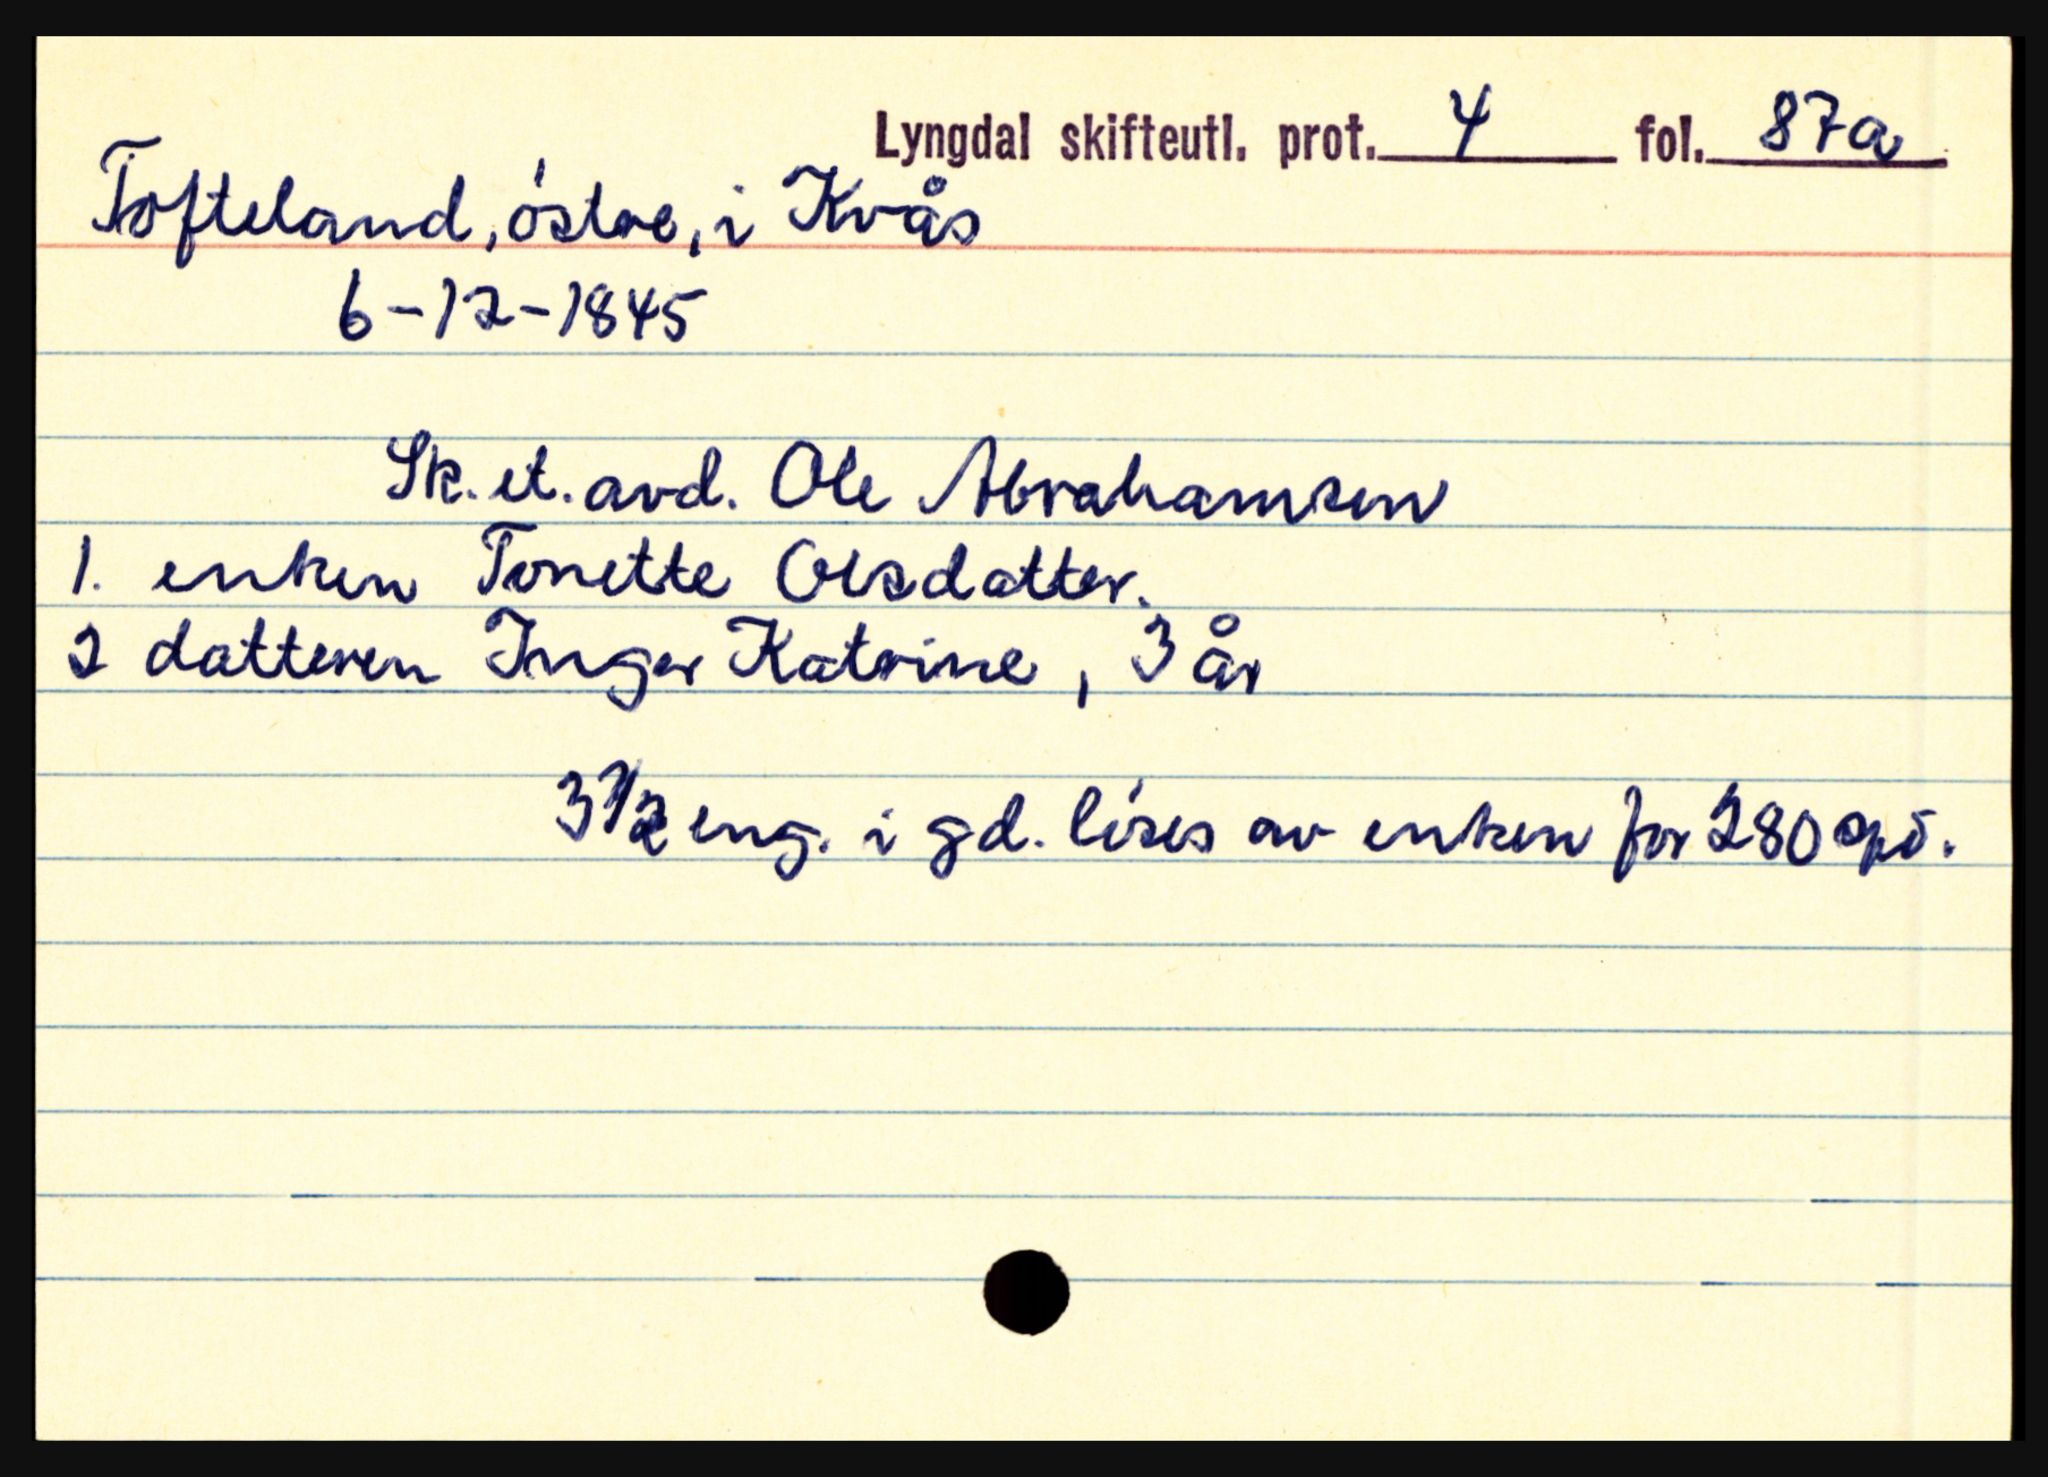 Lyngdal skifteutl. prot. 4 fol. 87a
Tofteland, östre, i Kvås
6-12-1845
Sk. et. avd. Ole Abrahamsen
1. enken Tonette Olsdatter.
2 datteren Inger Katrine, 3 år
3 1/2 eng. i gd. löses av enken for 280 spd.